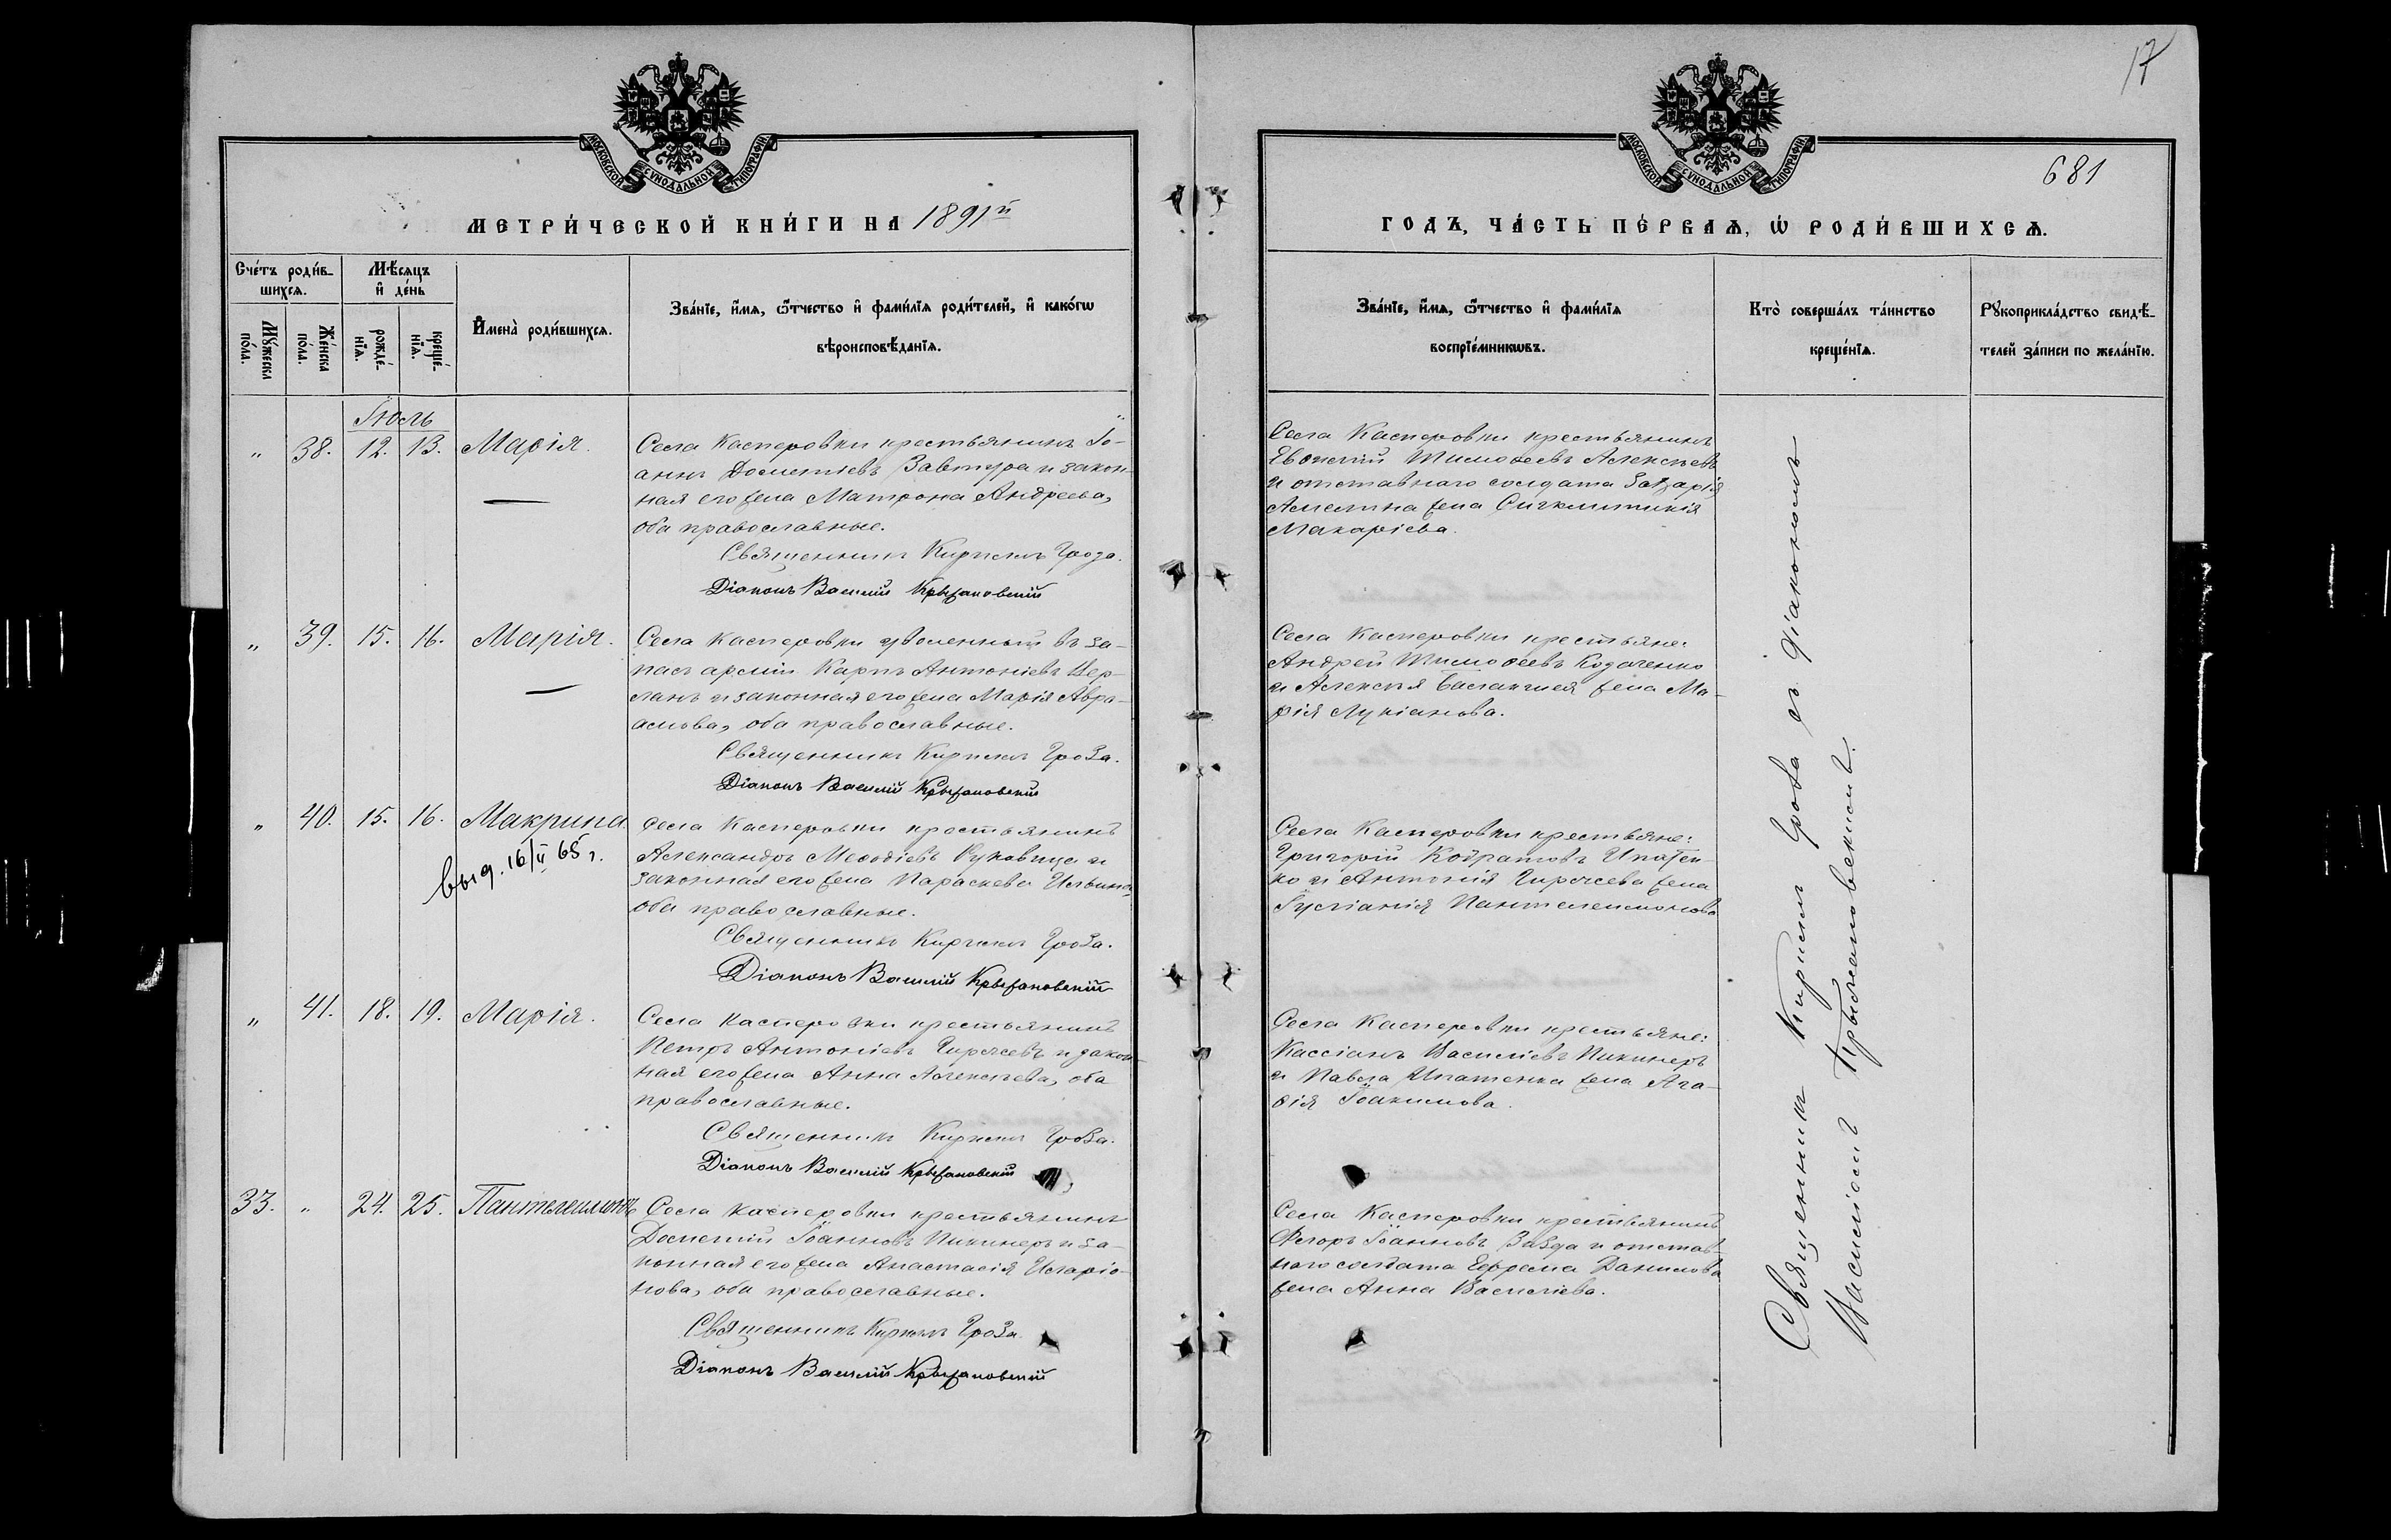 17
681
МОСКОВСКОЙ СѴНОДАЛЬНОЙ ТИПОГРАФІИ
МОСКОВСКОЙ СѴНОДАЛЬНОЙ ТИПОГРАФІИ
МЕТРИ́ЧЕСКОЙ КНИ́ГИ НА 1891й
ГОДЪ, ЧА́СТЬ ПЕ́РВАѦ, Ѡ҆ РОДИ́ВШИХСѦ.
Сче́тъ роди́в-
шихсѧ.
Мѣ́сѧцъ
и҆ де́нь
Мꙋ́жеска
по́ла.
Же́нска
по́ла.
рожде́-
нїѧ.
креще́-
нїѧ.
И҆мена̀ роди́вшихсѧ.
Зва́нїе, и҆́мѧ, ѻ҆́тчество и҆ фами́лїѧ роди́телей, и҆ како́гѡ
вѣроисповѣ́данїѧ.
Зва́нїе, и҆́мѧ, ѻ҆́тчество и҆ фами́лїѧ
воспрїе́мникѡвъ.
Кто̀ соверша́лъ та́инство
креще́нїѧ.
Рꙋкоприкла́дство свидѣ́-
телей за́писи по жела́нїю.
Іюль
„ 38. 12. 13. Марія.
Села Касперовки крестьянинъ Іо-
аннъ Дометіевъ Завтура и закон-
ная его жена Матрона Андреева,
оба православные.
Священникъ Кириллъ Гроза.
Діаконъ Василій Крыжановскій
Села Касперовки крестьянинъ
Тимоѳеевъ Алексѣевъ
и отставного солдата Захарія
жена Синклитикія
Макаріева.
„ 39. 15. 16. Марія.
Села Касперовки уволенный въ за-
пасъ арміи Карпъ Антоніевъ Цер-
ланъ и законная его жена Марія Авра-
амова, оба православные.
Священникъ Кириллъ Гроза.
Діаконъ Василій Крыжановскій
Села Касперовки крестьяне:
Андрей Тимоѳеевъ Кодаченко
и Алексѣя жена Ма-
рія Лукіанова.
„ 40. 15. 16. Макрина.
выд. 16/II 65 г.
Села Касперовки крестьянинъ
Александръ Меѳодіевъ Руковица и
законная его жена Параскева Ильина,
оба православные.
Священникъ Кириллъ Гроза.
Діаконъ Василій Крыжановскій
Села Касперовки крестьяне:
Григорій Кодратовъ Ипатен-
ко и Антонія Гирячева жена
Іуліанія Пантелеимонова
„ 41. 18. 19. Марія.
Села Касперовки крестьянинъ
Петръ Антоніевъ Гирячевъ и закон-
ная его жена Анна Алексѣева, оба
православные.
Священникъ Кириллъ Гроза.
Діаконъ Василій Крыжановскій
Села Касперовки крестьяне:
Кассіанъ Василіевъ Пикинеръ
и Павла Ипатенка жена Ага-
ѳія Іоакимова.
33. „ 24. 25. Пантелеимонъ
Села Касперовки крестьянинъ
Дометій Іоанновъ Пикинеръ и за-
конная его жена Анастасія Иларіо-
нова, оба православные.
Священникъ Кириллъ Гроза
Діаконъ Василій Крыжановскій
Села Касперовки крестьянинъ
Іоанновъ и отстав-
ного солдата Ефрема Данилова
жена Анна Василіева.
Священникъ Кириллъ Гроза съ діакономъ
Василіемъ Крыжановскимъ.